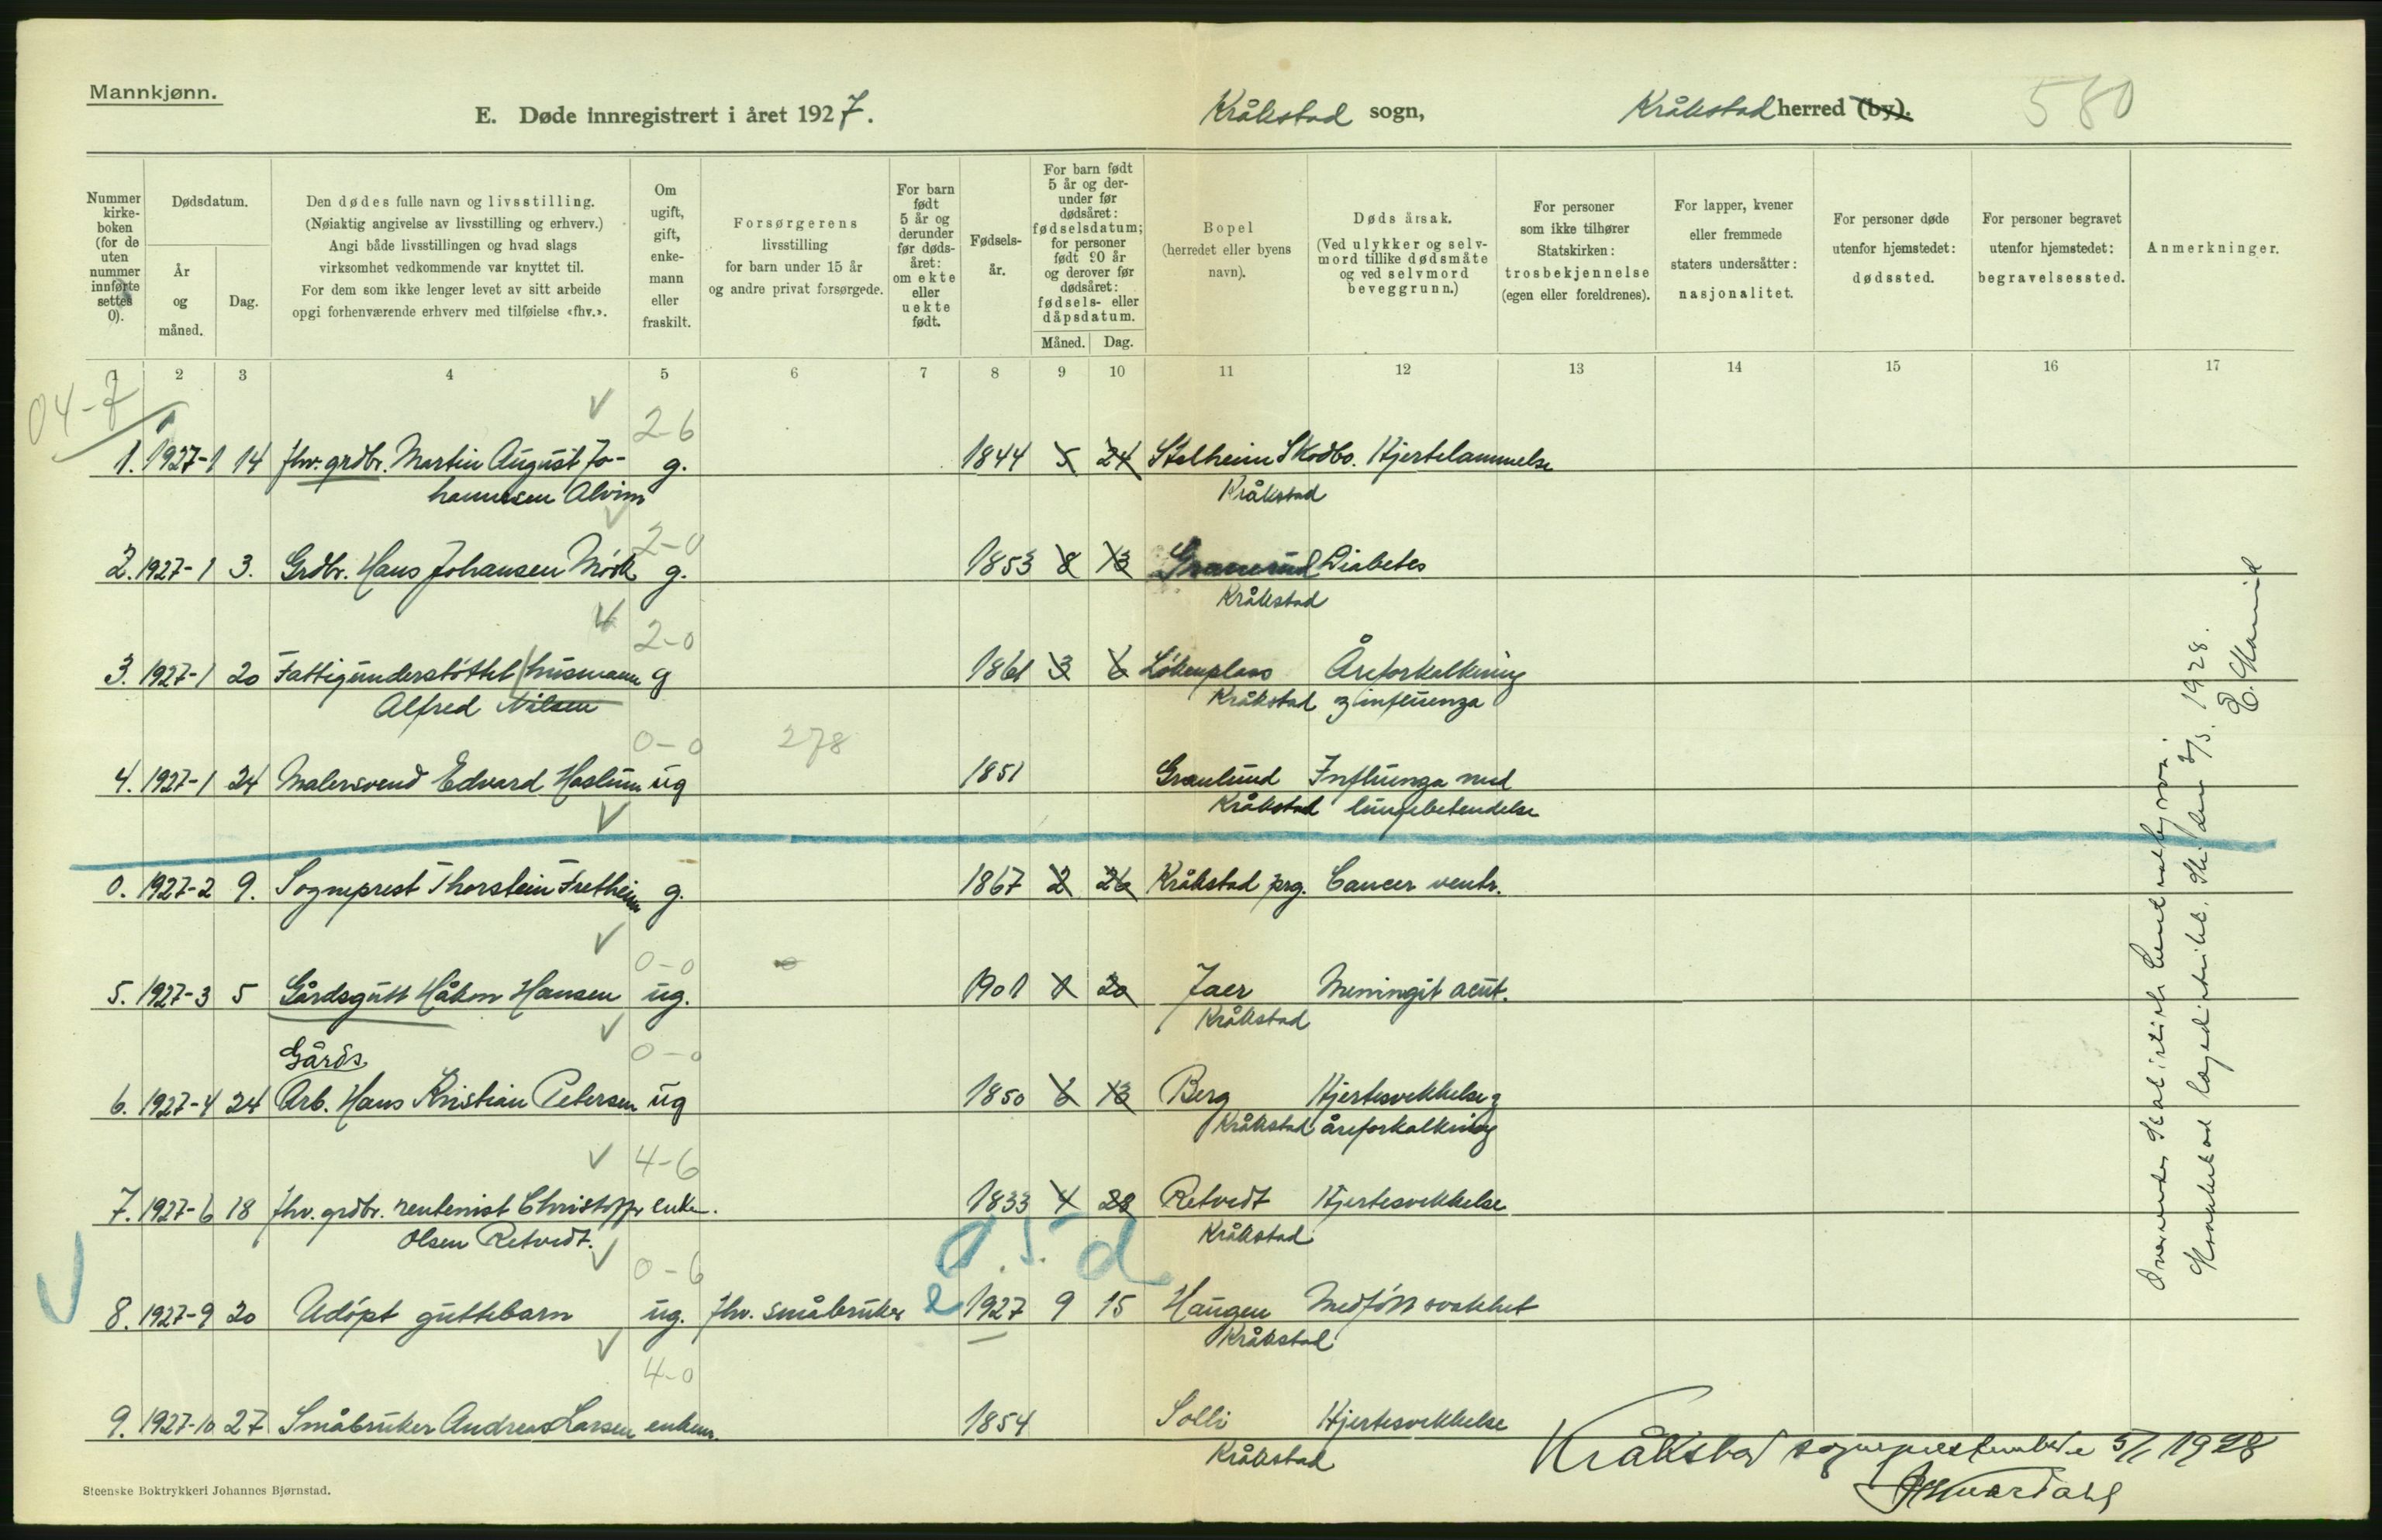 Mannkjønn.
E. Døde innregistrert i året 1927. Kråkstad sogn, Kråkstad herred (by). 580
Nummer kirke-boken (for de uten nummer innførte settes 0).
Dødsdatum.
År og måned.
Dag.
Den dødes fulle navn og livsstilling.
(Nøiaktig angivelse av livsstilling og erhverv.)
Angi både livsstillingen og hvad slags
virksomhet vedkommende var knyttet til.
For dem som ikke lenger levet av sitt arbeide
opgi forhenværende erhverv med tilføielse «fhv.».
Om ugift, gift, enke-mann eller fraskilt.
Forsørgerens
livsstilling
for barn under 15 år
og andre privat forsørgede.
For barn født 5 år og derunder før døds-året: om ekte eller uekte født.
Fødsels-år.
For barn født 5 år og der-under før dødsåret: fødselsdatum; for personer født 90 år og derover før dødsåret: fødsels- eller dåpsdatum.
Måned. Dag.
Bopel
(herredet eller byens
navn).
Dødsårsak.
(Ved ulykker og selv-
mord tillike dødsmåte
og ved selvmord
beveggrunn.)
For personer
som ikke tilhører
Statskirken:
trosbekjennelse
(egen eller foreldrenes).
For lapper, kvener
eller fremmede
staters undersåtter:
nasjonalitet.
For personer døde
utenfor hjemstedet:
dødssted.
For personer begravet
utenfor hjemstedet:
begravelsessted.
Anmerkninger.
1 2 3 4 5 6 7 8 9 10 11 12 13 14 15 16 17
04-7
2-6
1. 1927-1 14 fhv. grdbr. Martin August Jo- g. 1844 5 24 Stelheim Skodbo. Hjertelammelse
hannesen Alvim Kråkstad
2-0
2. 1927-1 3. Grdbr. Hans Johansen Mörk g. 1853 8 13 Granerud Diabetes
Kråkstad
2-0
3. 1927-1 20 Fattigunderstöttet husmann g 1861 3 6 Lökenplass Åreforkalkning
Alfred Nilsen Kråkstad og influenza
0-0 278
4. 1927-1 24 Malersvend Edvard Haslum ug 1851 Granlund Influenza med
Kråkstad lungebetendelse
0. 1927-2 9. Sogneprest Thorstein Fretheim g. 1867 2 26 Kråkstad prg. Cancer ventr.
0-0
5. 1927-3 5 Gårdsgutt Håkon Hansen ug. 1901 1 20 Jaer Meningit acut.
Kråkstad
Gårds 0-0
6. 1927-4 24 Arb. Hans Kristian Petersen ug 1850 6 13 Berg Hjertesvekkelse og
Kråkstad åreforkalkning
4-6
7. 1927-6 18 fhv. grdbr. rentenist Christoffer enkem. 1833 4 28 Retvedt Hjertesvekkelse
Olsen Retvedt. Kråkstad
0-6 0.5 d
8. 1927-9 20 Udöpt guttebarn ug. fhv. småbruker e 1927 9 15 Haugen Medfött svakhet
Kråkstad
4-0
9. 1927-10 27 Småbruker Andreas Larsen enkem. 1854 Solli Hjertesvekkelse
Kråkstad
Kråkstad sogneprestembede 5/1 1928
Oversendes Statistisk Centralbyrå.
lægedistrikt. Ski den 1928.
Steenske Boktrykkeri Johannes Bjørnstad.